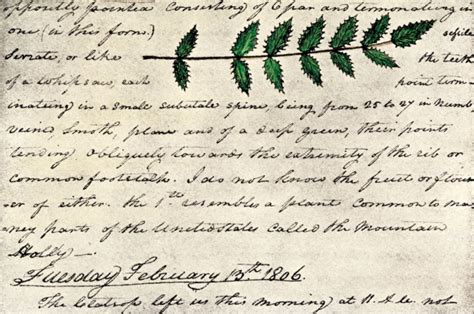 oppositly pointed consisting of 6 par and termonateing in
one (in this form.) sessile
Serrate, or like the teeth
of a whipsaw, each point term-
inateing in a small subulate spine, being from 25 to 27 in numb
veined, smoth, plane and of a deep green, their points
tending obliquely towards the extremity of the rib or
common footstalk. I do not know the fruit or flow
er of either. the 1st resembles a plant common to ma-
ney parts of the United States called the Mountain
Holly—
Tuesday February 13th 1806.
The Clatsop left us this morning at 11. A.M. not